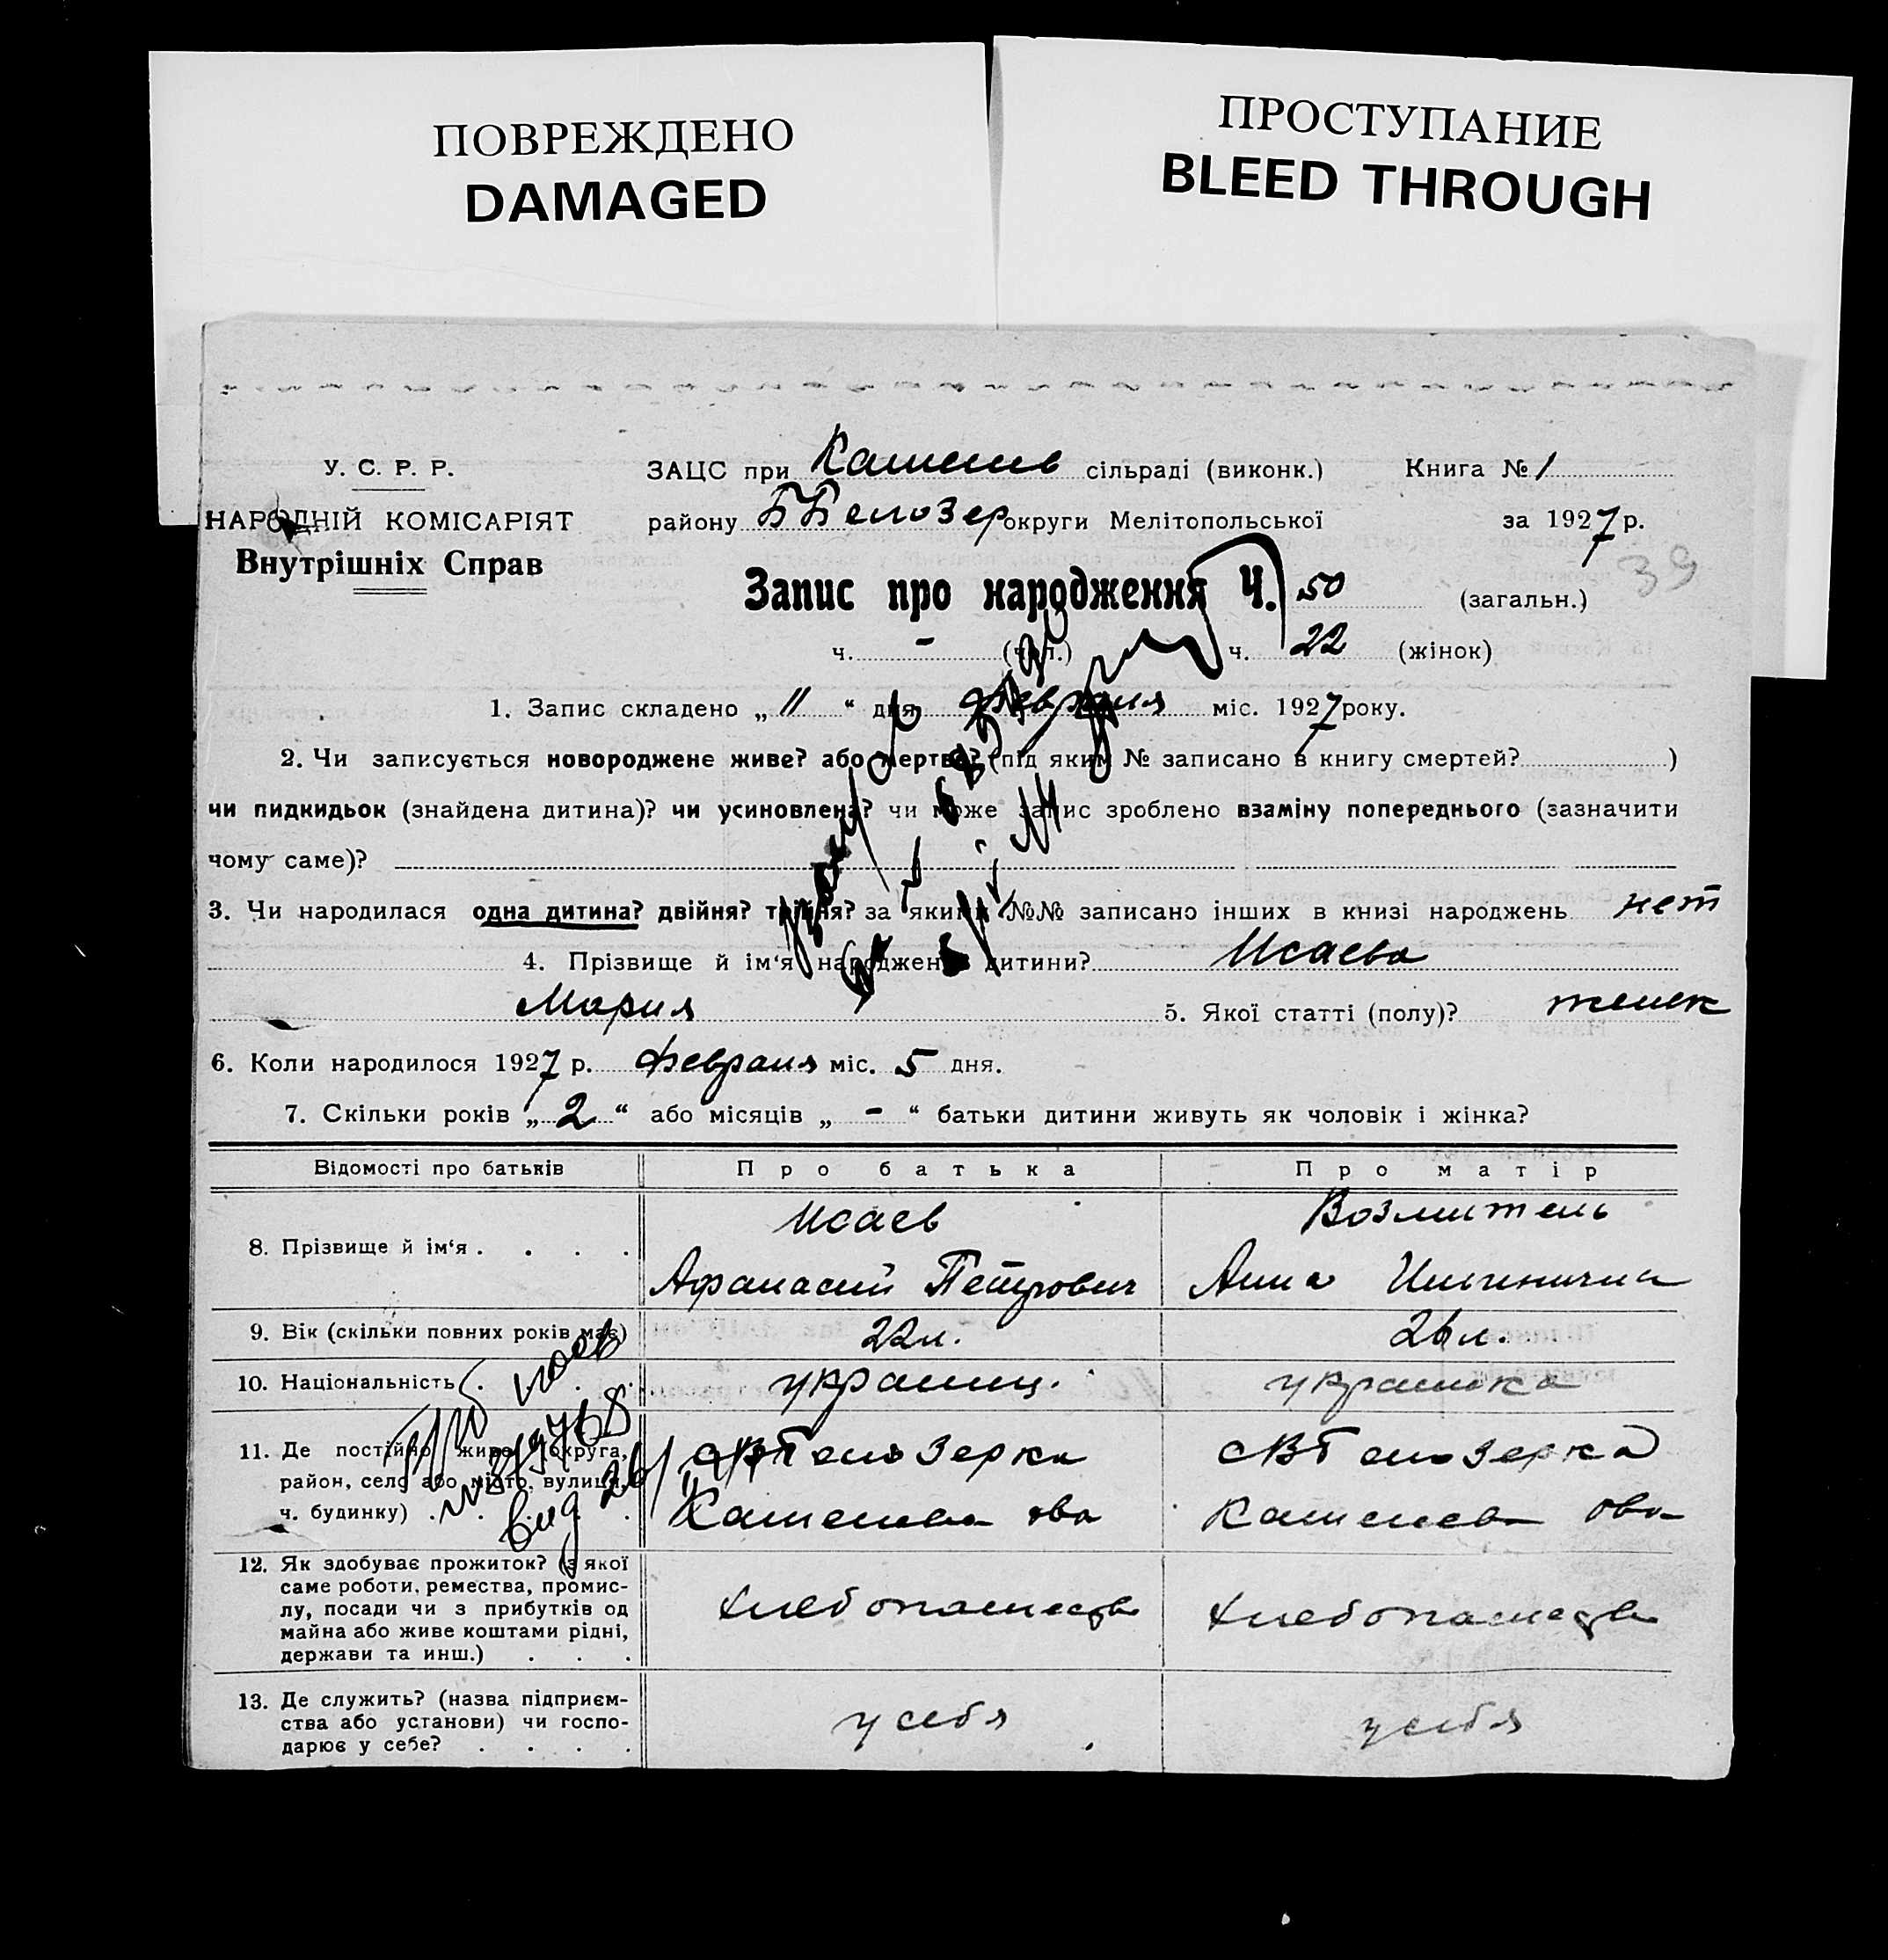 ПОВРЕЖДЕНО
DAMAGED
ПРОСТУПАНИЕ
BLEED THROUGH
У. С. Р. Р.
НАРОДНІЙ КОМІСАРІЯТ
Внутрішніх Справ
ЗАЦС при сільраді (виконк.) Книга № 1
району округи Мелітопольської за 1927 р.
39
Запис про народження Ч. 50 (загальн.)
ч. - (чол.) ч. 22 (жінок)
1. Запис складено „ 11 “ дня февраля міс. 1927 року.
2. Чи записується новороджене живе? або мертве? (під яким № записано в книгу смертей? )
чи пидкидьок (знайдена дитина)? чи усиновлена? чи може запис зроблено взаміну попереднього (зазначити
чому саме)?
3. Чи народилася одна дитина? двійня? трійня? за якими №№ записано інших в книзі народжень нет
4. Прізвище й ім‘я народженої дитини? Исаева
Мария 5. Якої статті (полу)? женск
6. Коли народилося 1927 р. февраля міс. 5 дня.
7. Скільки років „ 2 “ або місяців „ - “ батьки дитини живуть як чоловік і жінка?
Відомості про батьків Про батька Про матір
8. Прізвище й ім‘я . . . . Исаев Возлитель
Афанасий Петрович Анна
9. Вік (скільки повних років має) 22 л. 26 л.
10. Національність . . . украинц. украинка
11. Де постійно живе (округа,
район, село або місто, вулиця,
ч. будинку) . . . .
12. Як здобуває прожиток? (з якої
саме роботи, ремества, промис-
лу, посади чи з прибутків од
майна або живе коштами рідні,
держави та инш.) . . .
хлебопашество хлебопашество
13. Де служить? (назва підприєм-
ства або установи) чи госпо-
дарює у себе? . . . .
у себя у себя